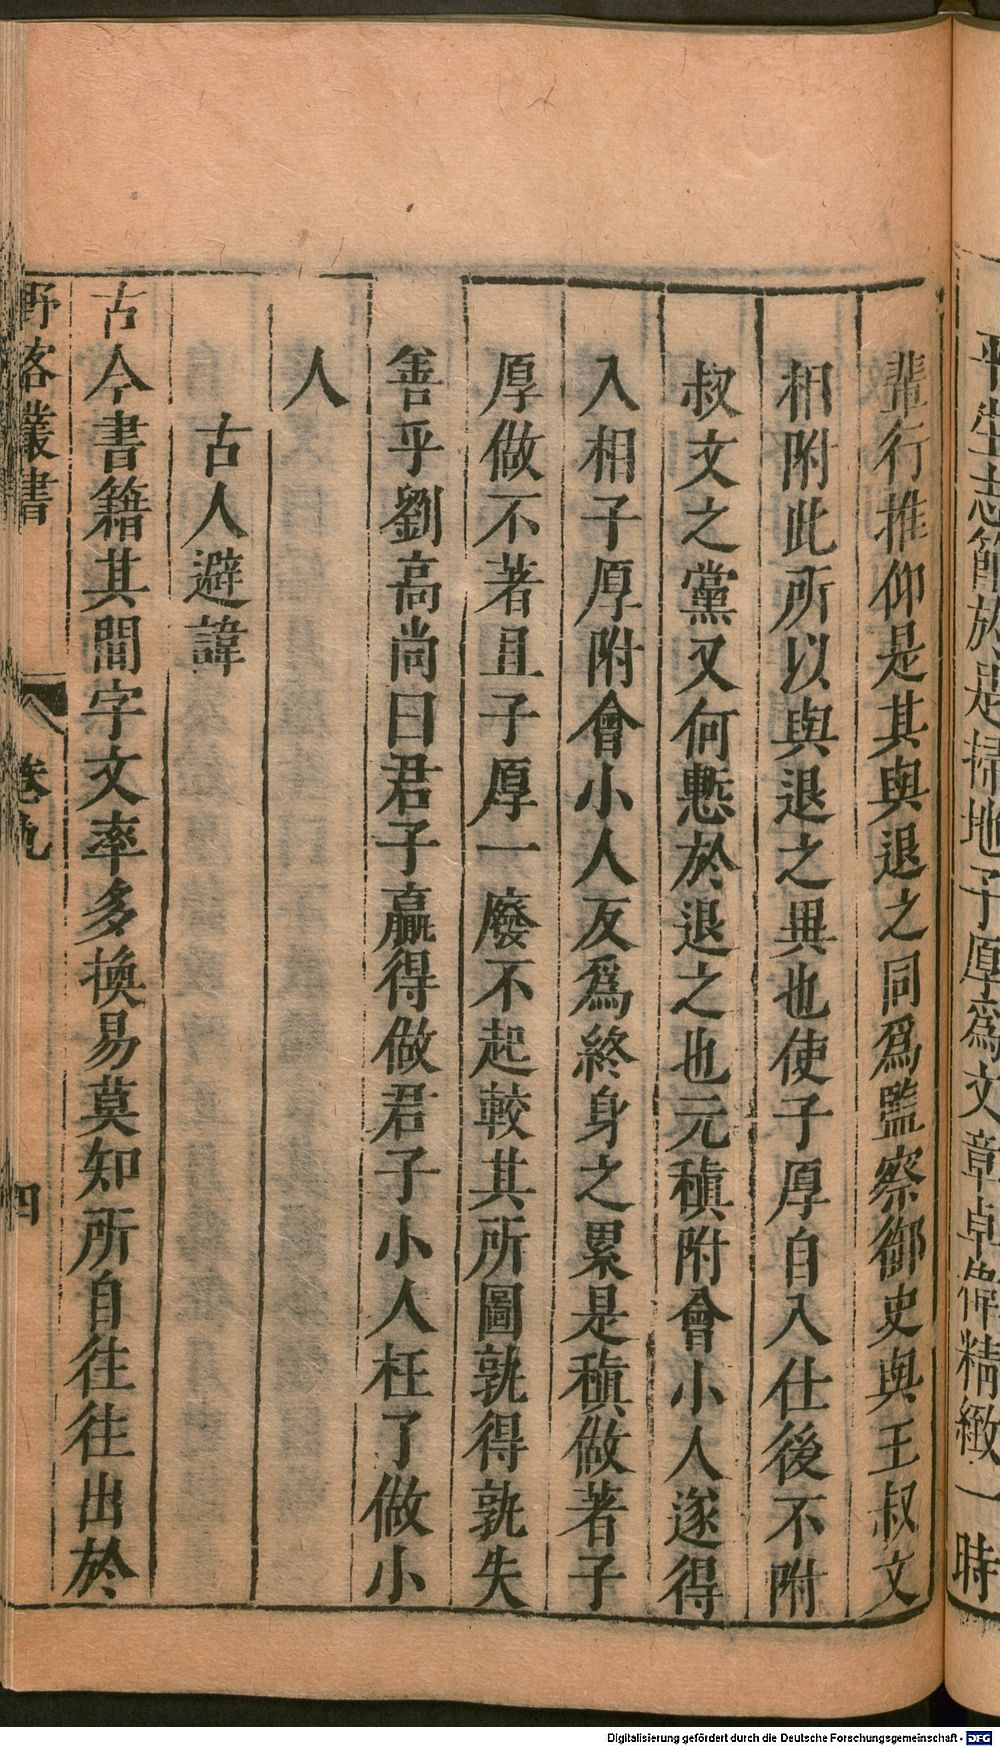 平生志節於是掃地子厚爲文章卓偉精緻一時
輩行推仰是其與退之同爲監察御史與王叔文
相附此所以與退之異也使子厚自入仕後不附
叔文之黨又何慙於退之也元稹附會小人遂得
入相子厚附會小人反爲終身之累是稹做著子
厚做不著且子厚一廢不起較其所圖孰得孰失
善乎劉高尚曰君子贏得做君子小人枉了做小
人
古人避諱
古今書籍其間字文率多換易莫知所自往往出於
野客叢書 卷九 四
Digitalisierung gefördert durch die Deutsche Forschungsgemeinschaft - DFG